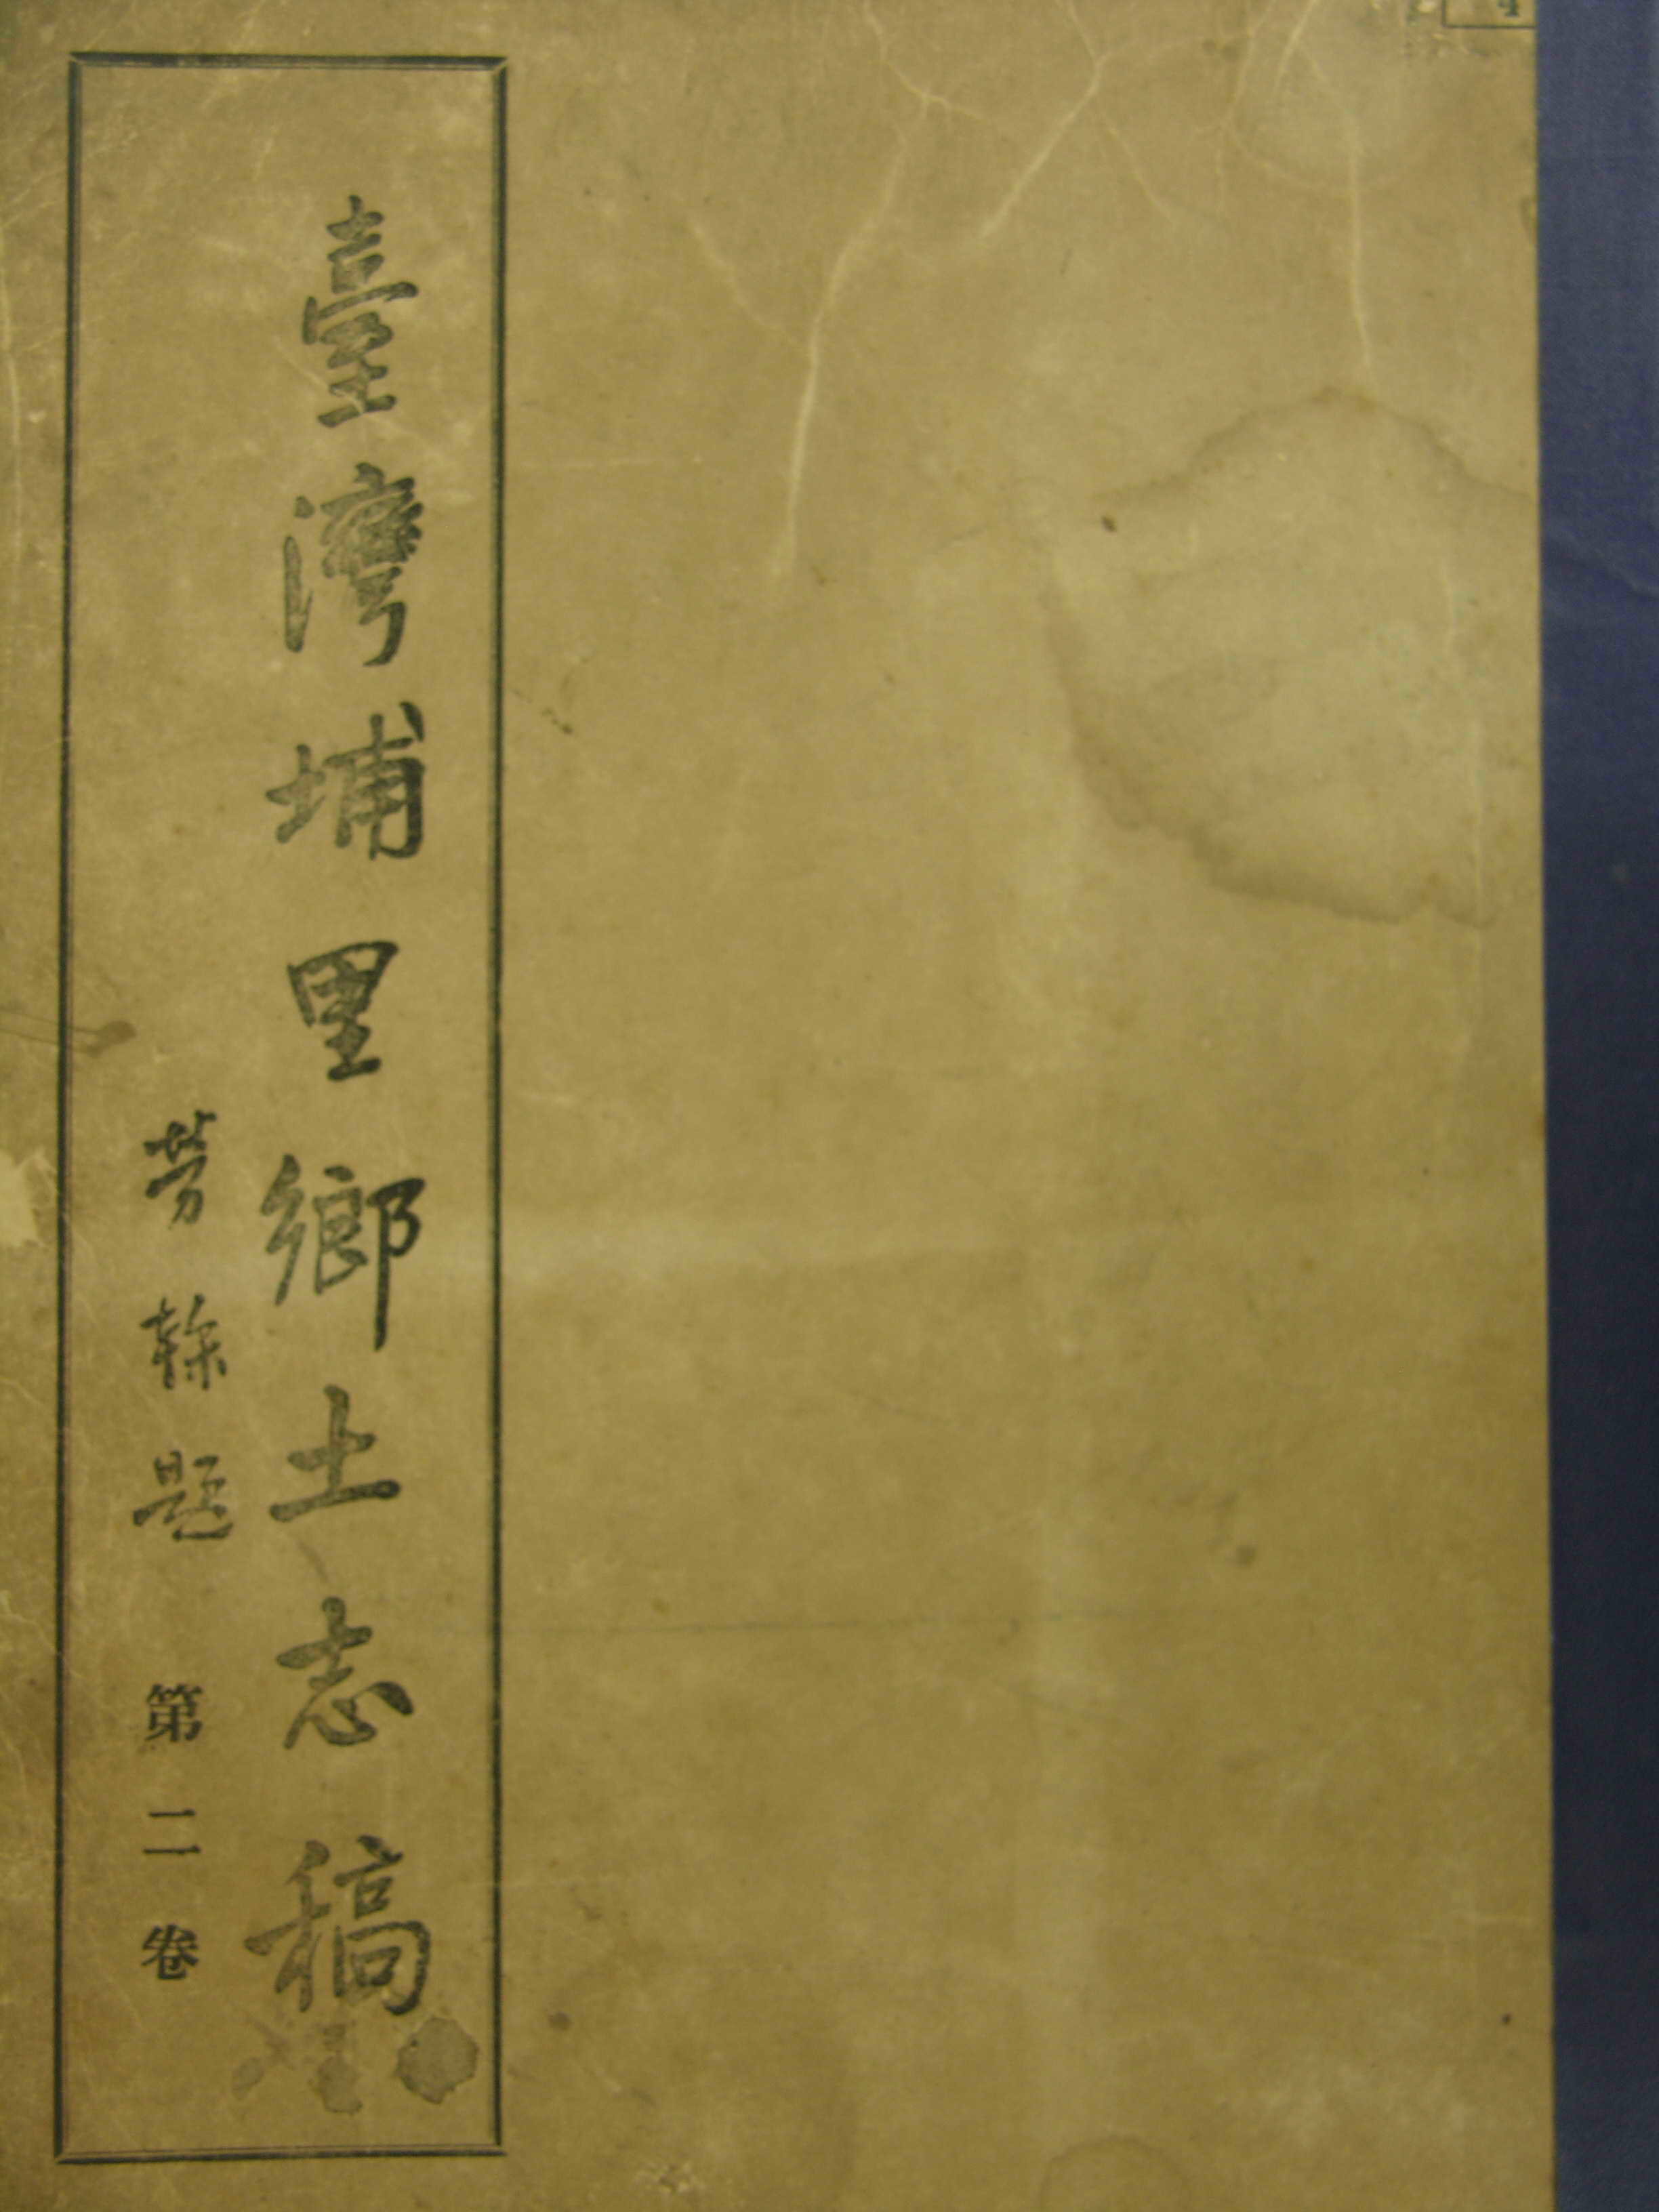 臺灣埔里鄉土志稿
芳榦題 第二卷